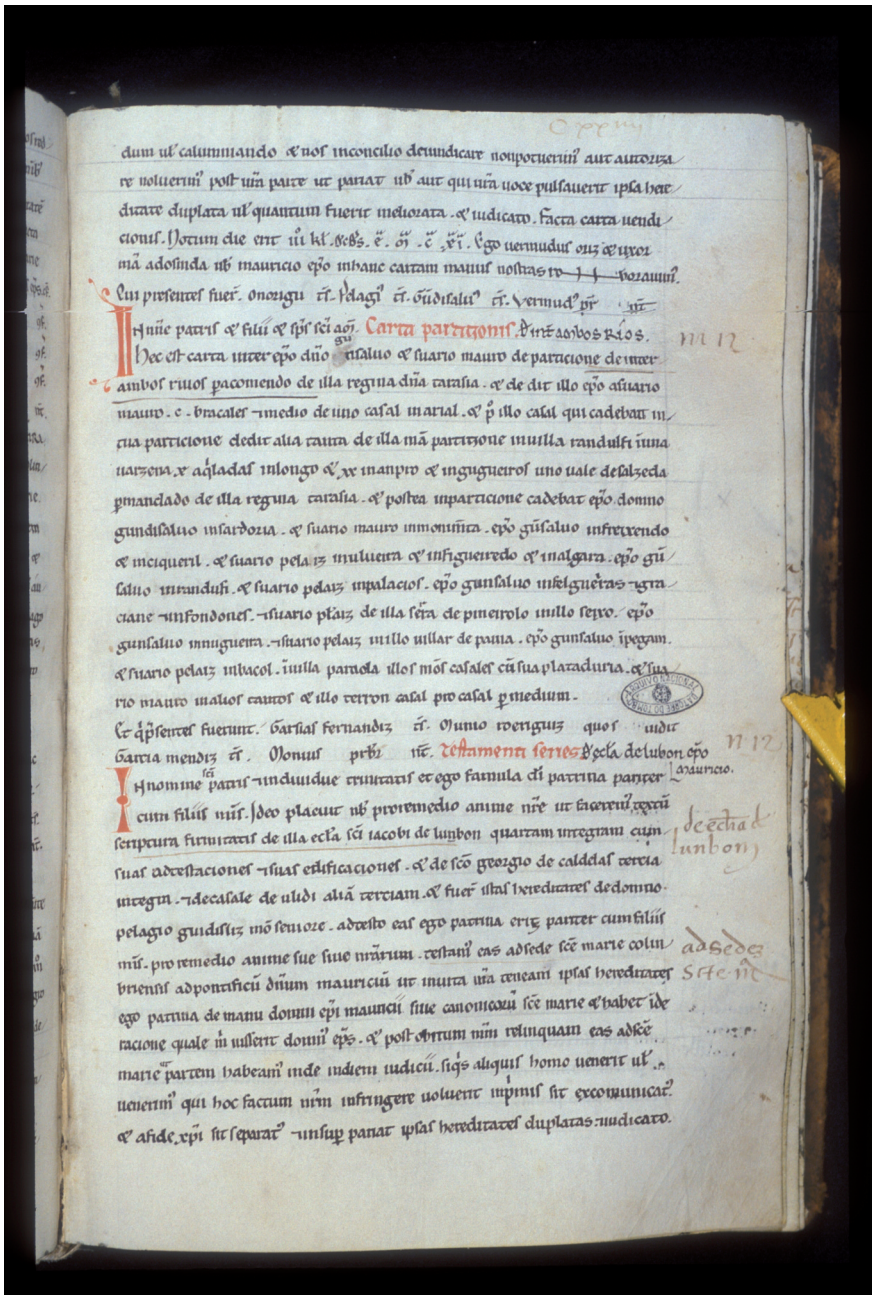 dum ul' calumniando & nos inconcilio deuindicare nonpotuerim' aut autoriza
re noluerim' post ur̄a parte ut pariat ub' aut qui ur̄a uoce pulsauerit ipsa here
ditate duplata ul' quantum fuerit meliorata. & iudicato. facta carta uendi
cionis. Notum die erit kl' Ego uermudus oriz & uxor
mā adosinda ub' mauricio ep̄o inhanc cartam manus nostras ro boraui
Qui presentes fuer̄. onorigu t̄s. Pelagi' t̄s. Gūdisalu' t̄s. Vermud' pr̄
IN nn̄e patris & filii & sp̄s sc̄i am̄. Carta partitionis. D' int' ambos Rios.
Hec est carta inter ep̄o dn̄o gunsaluo & suario mauro de particione de inter
ambos riuos p acomendo de illa regina dn̄a tarasia. & de dit illo ep̄o asuario
mauro. c. bracales ⁊medio de uno casal inarial. & p̄ illo casal qui cadebat in
tua particione dedit alia tanta de illa mā partitione inuilla randulfi ī una
uarzena x aq̄ladas inlongo & xx inanpro & ingugueiros uno uale desalzeda
p mandado de illa regina tarasia. & postea inparticione cadebat ep̄o domno
gundisaluo insardoria. & suario mauro inmonim̄ta. ep̄o gūsaluo infreixendo
& inciqueril. & suario pelaiz inulueira & infigueiredo & inalgara. ep̄o gū
saluo inrandufi. & suario pelaiz inpalacios. ep̄o gunsaluo infelguer̄as ⁊gra
ciane ⁊infondones. ⁊suario pl̄aiz de illa ser̄a de pineirolo inillo seixo. ep̄o
gunsaluo innugueira. ⁊suario pelaiz inillo uillar de pauia. ep̄o gunsaluo ī pegam.
& suario pelaiz inbacol. ī uilla paraola illos mōs casales cū sua platadura. & sua
rio mauro inalios tantos & illo terron casal pro casal p medium.
Et q̄ p̄sentes fuerunt. Garsias fernandiz t̄s. Munio roeriguiz quos uidit
Garcia mendiz t̄s. Monius prb̄r n̄t. Testamenti series D' ecl'a de lubon ep̄o
mauricio.
IN nomine sc̄i patris ⁊indiuidue trinitatis et ego famula d̄i patrina pariter
cum filiis m̄is. Ideo placuit nb' proremedio anime nr̄e ut facerem' textū
scriptura firmitatis de illa ecl'a sc̄i iacobi de lunbon quartam integram cum
suas adtestaciones ⁊suas edificaciones. & de sc̄o georgio de calddas tercia
integra. ⁊decasale de ulidi aliā terciam. & fuer̄ istas hereditates dedomno
pelagio guidisliz mō seniore. adtesto eas ego patrina eriz pariter cum filiis
m̄is. pro remedio anime sue siue nr̄arum. testam' eas adsede sc̄e marie colin
briensis adpontificū dn̄um mauriciū ut inuita mā teneam ipsas hereditates
ego patrina de manu domni ep̄i mauricii siue canonicorū sc̄e marie & habet īde
racione quale m̄ iusserit domn' ep̄s. & post obitum mm̄ relinquam eas adsc̄e
marie partem habeam' inde indiem iudicii. siq̄s aliquis homo uenerit ul'
uenerim' qui hoc factum nr̄m infringere uoluerit inp̄mis sit excomunicat'
& afide xp̄i sit separat' ⁊insup pariat ipsas hereditates duplatas: iudicato.
n 12
n 12
de ecl̄ia d
lunbom
ad sedez
ARQUIVO NACIONAL DA TORRE DO TOMBO